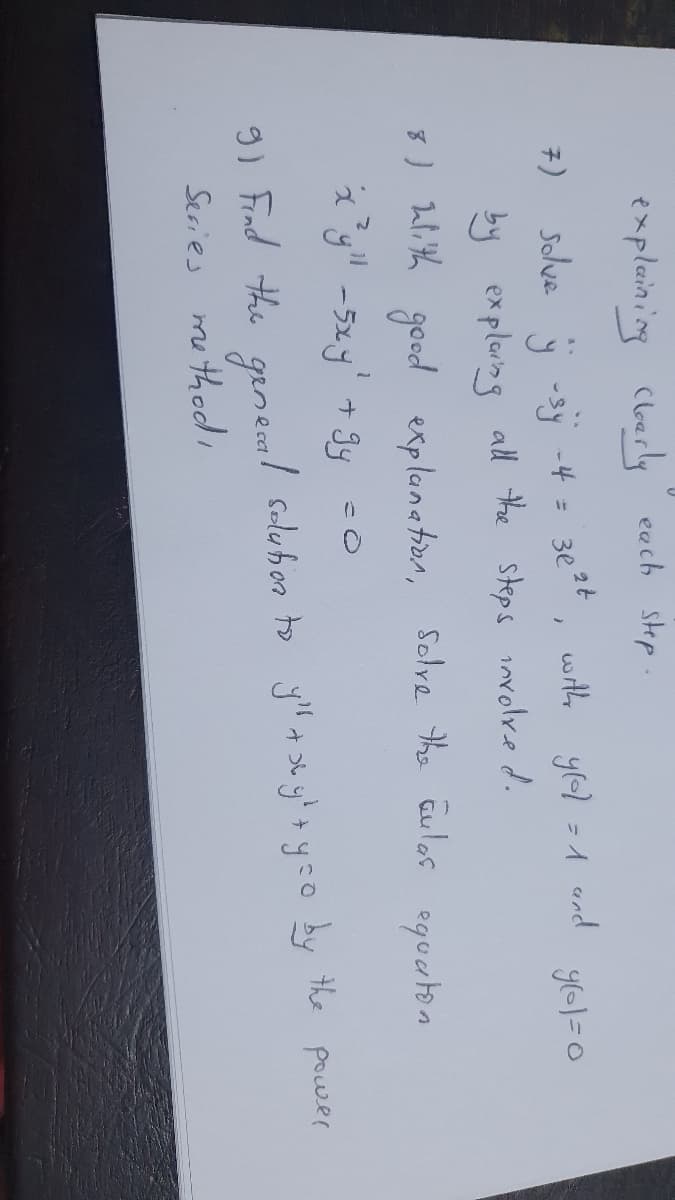 explaining clearly each step.
7) solve ÿ -3ÿ -4 = 3e²ᵗ, with y(0) = 1 and y(0)=0
by explaing all the steps involved.
8) With good explanation, Solve the Eulas equaton
x²y'' -5xy' + 9y = 0
9) Find the general solution to y''+xy'+y=0 by the power
Series method,